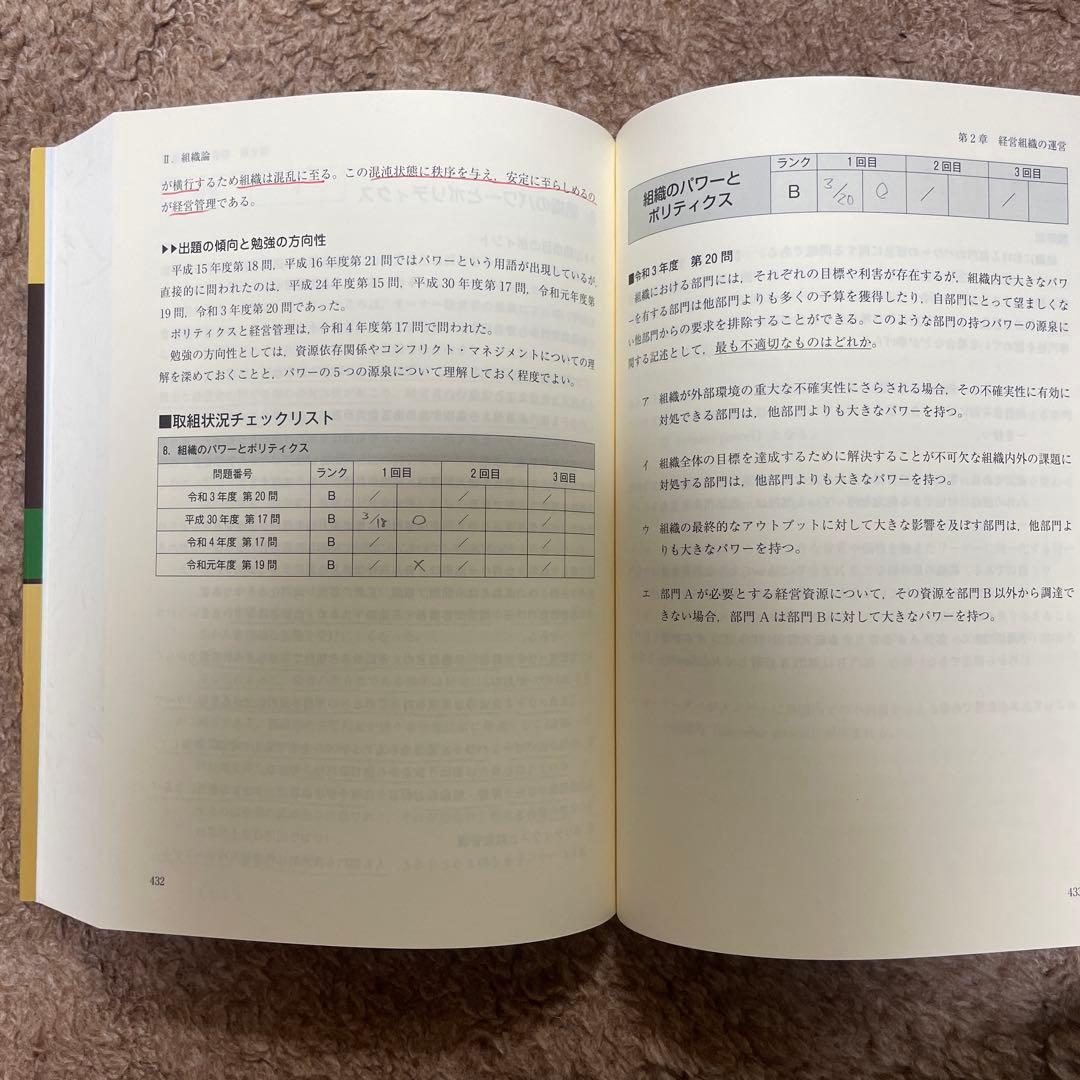 Ⅱ．組織論
が横行するため組織は混乱に至る。この混沌状態に秩序を与え，安定に至らしめるの
が経営管理である。
▶▶出題の傾向と勉強の方向性
平成15年度第18問，平成16年度第21問ではパワーという用語が出現しているが，
直接的に問われたのは，平成24年度第15問，平成30年度第17問，令和元年度第
19問，令和3年度第20問であった。
ポリティクスと経営管理は，令和4年度第17問で問われた。
勉強の方向性としては，資源依存関係やコンフリクト・マネジメントについての理
解を深めておくことと，パワーの5つの源泉について理解しておく程度でよい。
■取組状況チェックリスト
8. 組織のパワーとポリティクス
問題番号 ランク 1回目 2回目 3回目
令和3年度 第20問 B ／ ／ ／
平成30年度 第17問 B 3/18 ○ ／ ／
令和4年度 第17問 B ／ ／ ／
令和元年度 第19問 B ／ × ／ ／
432
第2章 経営組織の運営
組織のパワーと
ポリティクス
ランク 1回目 2回目 3回目
B 3/20 ○ ／ ／
■令和3年度 第20問
組織における部門には，それぞれの目標や利害が存在するが，組織内で大きなパワ
ーを有する部門は他部門よりも多くの予算を獲得したり，自部門にとって望ましくな
い他部門からの要求を排除することができる。このような部門の持つパワーの源泉に
関する記述として，最も不適切なものはどれか。
ア 組織が外部環境の重大な不確実性にさらされる場合，その不確実性に有効に
対処できる部門は，他部門よりも大きなパワーを持つ。
イ 組織全体の目標を達成するために解決することが不可欠な組織内外の課題に
対処する部門は，他部門よりも大きなパワーを持つ。
ウ 組織の最終的なアウトプットに対して大きな影響を及ぼす部門は，他部門よ
りも大きなパワーを持つ。
エ 部門Aが必要とする経営資源について，その資源を部門B以外から調達で
きない場合，部門Aは部門Bに対して大きなパワーを持つ。
433